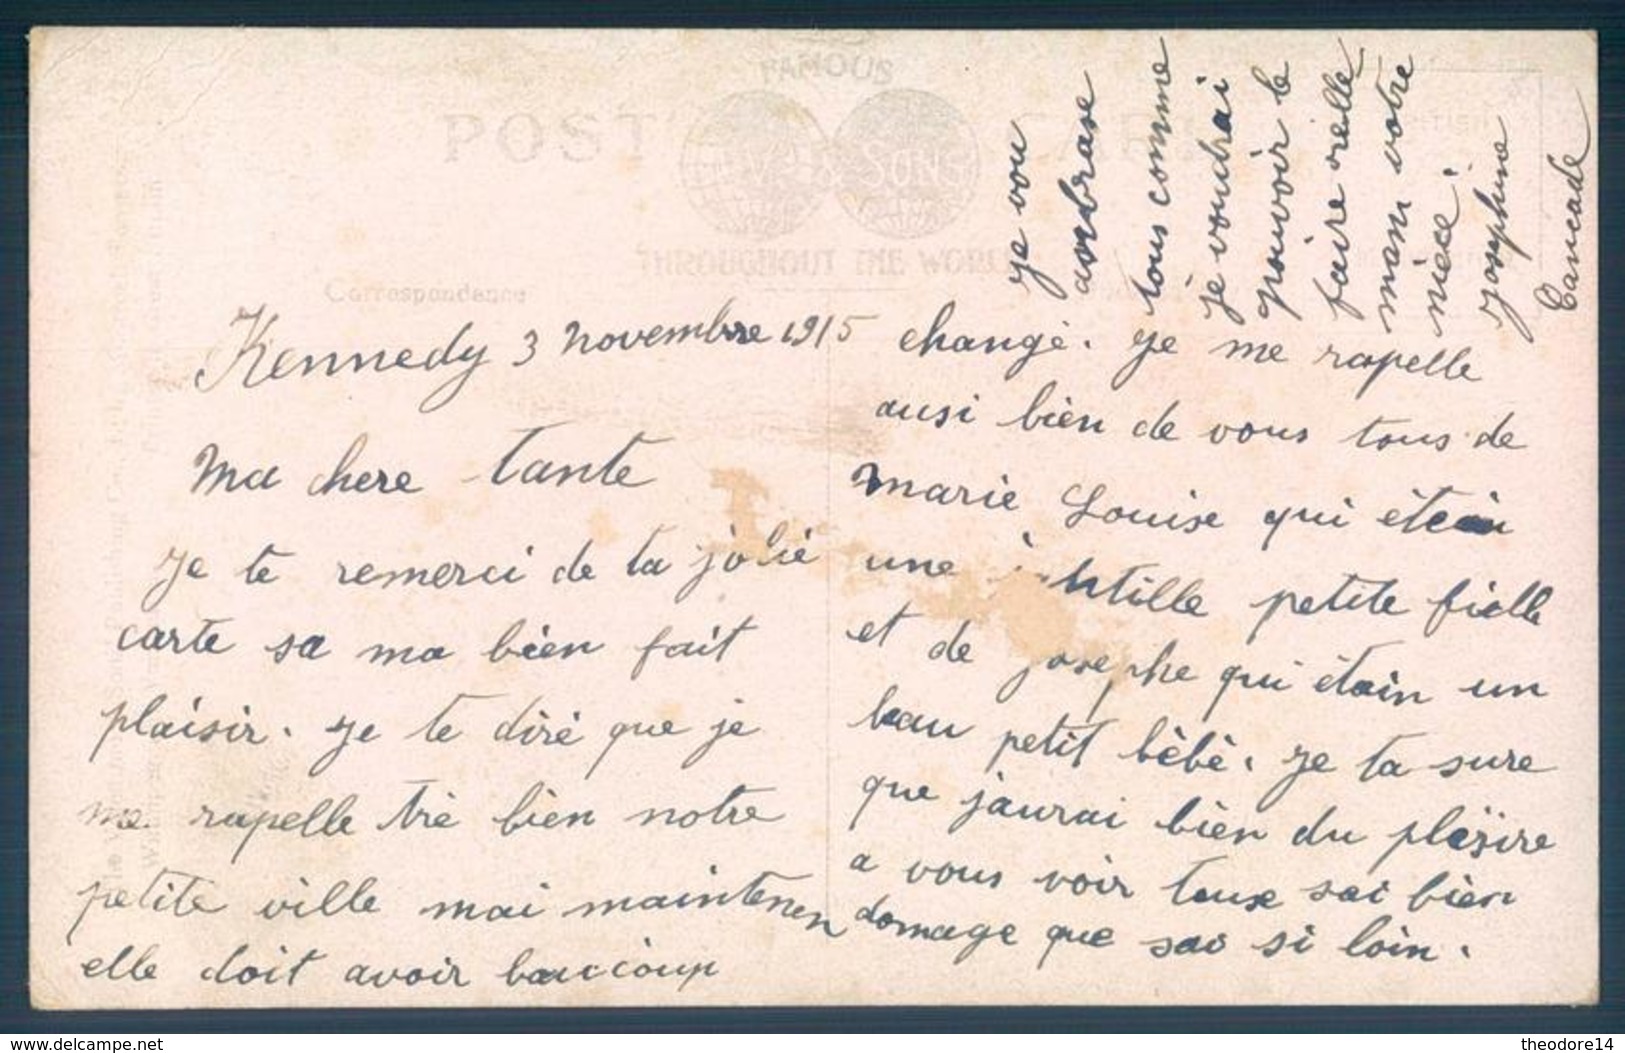 FAMOUS
POST CARD
& SONS
THROUGHOUT THE WORLD
Correspondance
Kennedy 3 novembre 1915
Ma chere tante
Je te remerci de ta jolie
carte sa ma bien fait
plaisir. Je te diré que je
me rapelle tré bien notre
petite ville mai maintenen
elle doit avoir baucoup
changé. Je me rapelle
ausi bien de vous tous de
marie Louise qui étein
une petite fielle
et de josephe qui étain un
beau petit bébé. Je ta sure
que jaurai bien du plésire
a vous voir tous sai bien
domage que sai si loin.
je vou
ambrase
tous comme
je voudrai
pouvoir le
faire réelle
mam votre
niéce.
Josephine
Cancade
www.delcampe.net
theodore14